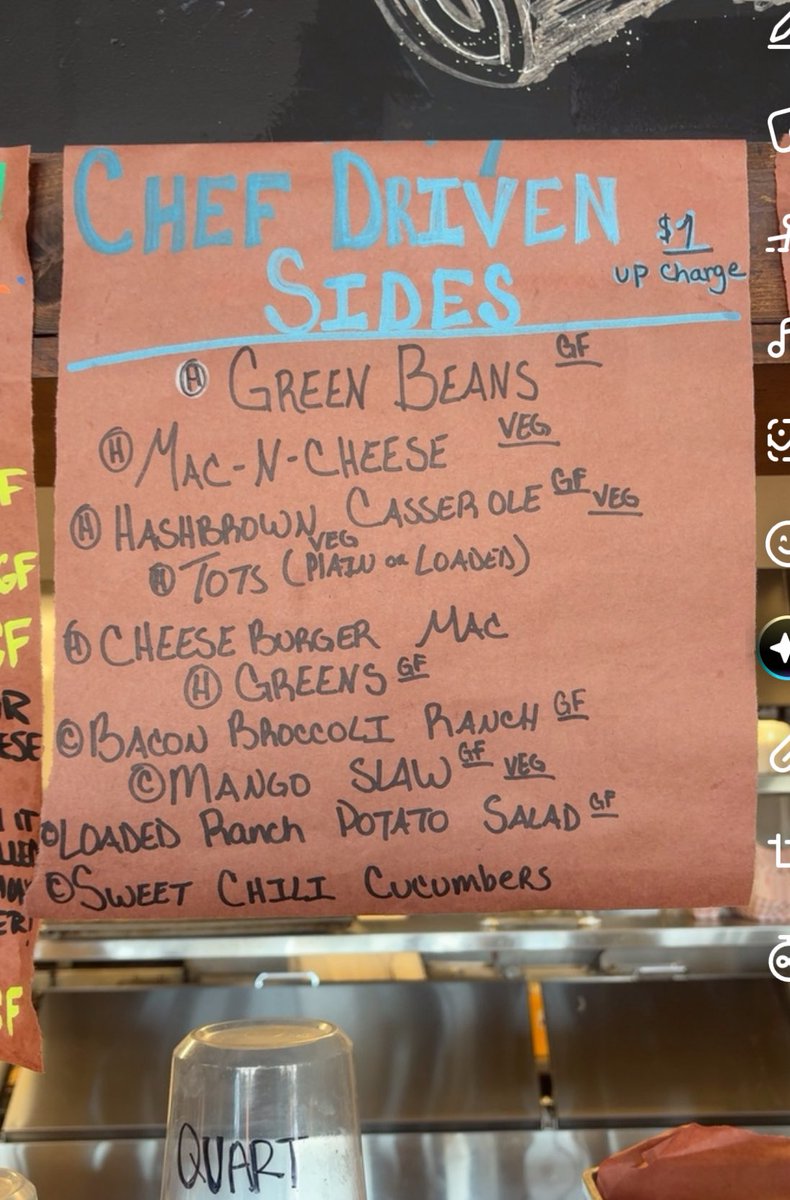 CHEF DRIVEN
SIDES
$1
up charge
Ⓗ GREEN BEANS GF
Ⓗ MAC-N-CHEESE VEG
Ⓗ HASHBROWN CASSEROLE GF VEG
Ⓗ TOTS (PLAIN OR LOADED) VEG
Ⓗ CHEESE BURGER MAC
Ⓗ GREENS GF
Ⓒ BACON BROCCOLI RANCH GF
Ⓒ MANGO SLAW GF VEG
Ⓒ LOADED Ranch POTATO SALAD GF
Ⓒ SWEET CHILI Cucumbers
QUART